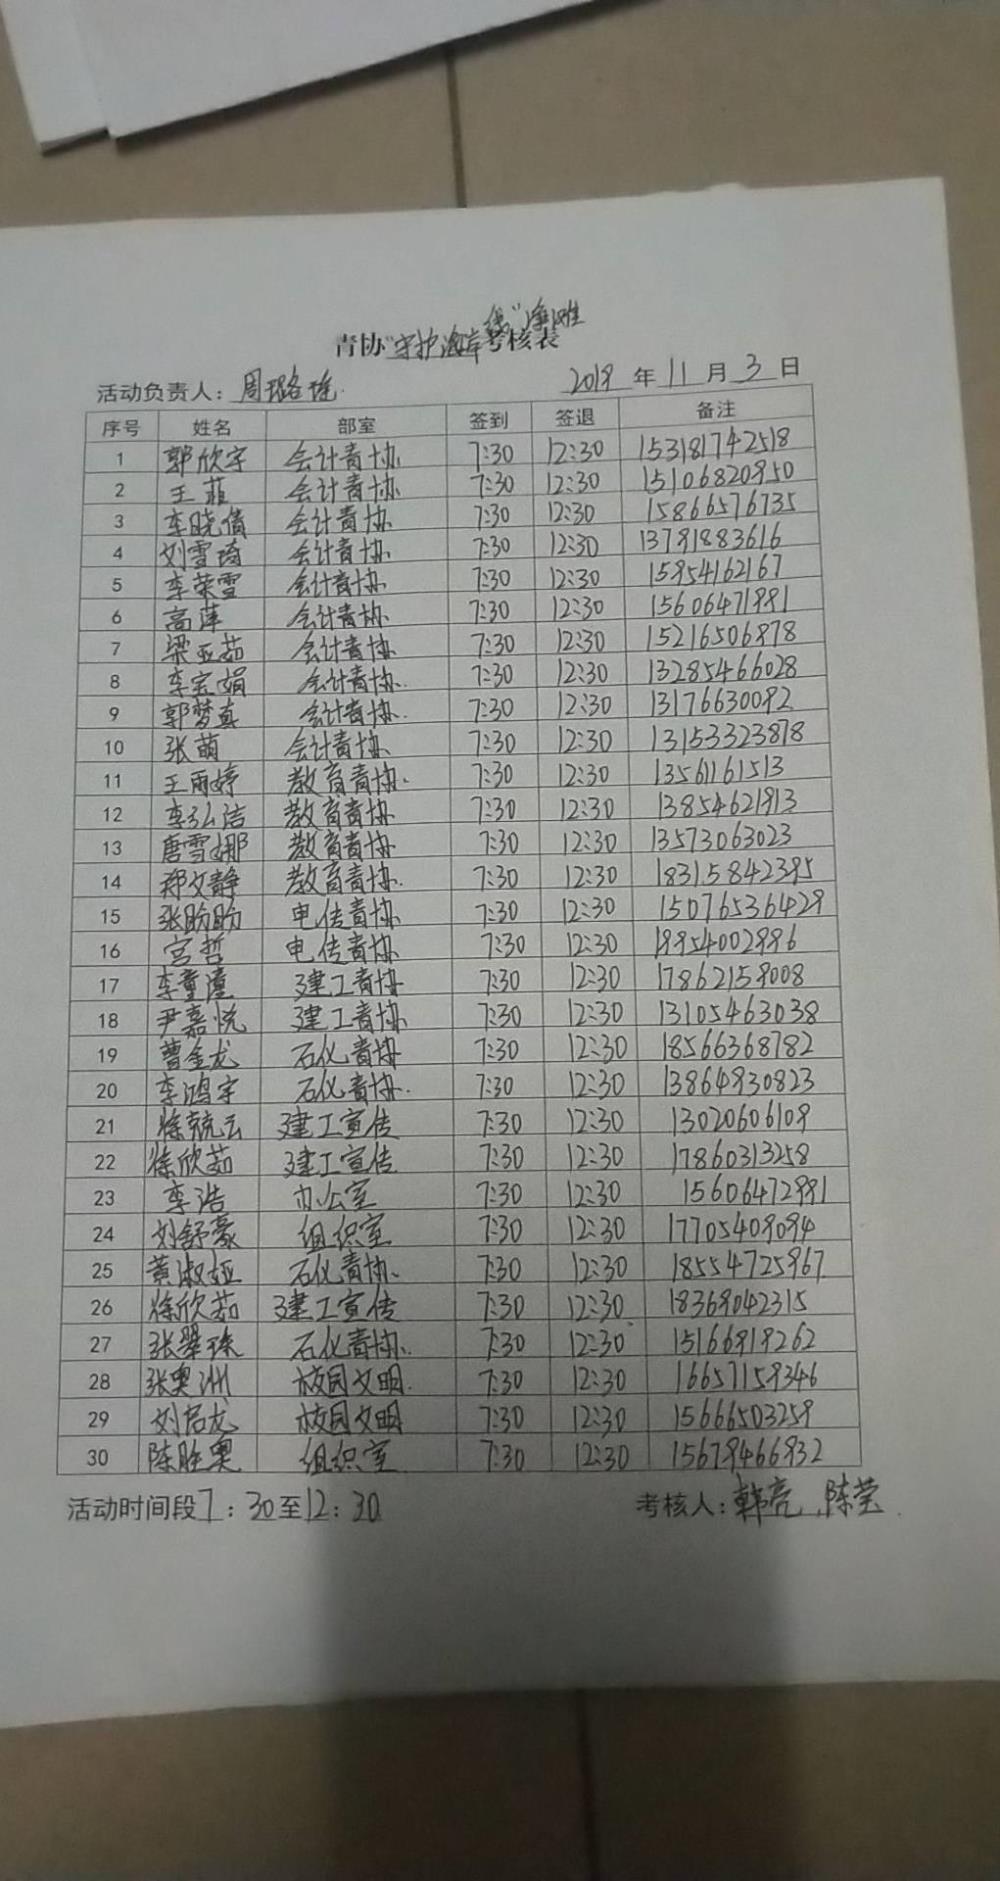 青协"守护海岸线"净滩考核表
活动负责人：周璐瑶 2019 年 11 月 3 日
序号 姓名 部室 签到 签退 备注
1 郭欣宇 会计青协 7:30 12:30 153181742518
2 王菲 会计青协 7:30 12:30 15106820950
3 李晓倩 会计青协 7:30 12:30 15866576735
4 刘雪琦 会计青协 7:30 12:30 13791883616
5 李荣雪 会计青协 7:30 12:30 15954162167
6 高萍 会计青协 7:30 12:30 15606471991
7 梁亚茹 会计青协 7:30 12:30 15216506978
8 李宝娟 会计青协 7:30 12:30 13285466028
9 郭梦真 会计青协 7:30 12:30 13176630092
10 张萌 会计青协 7:30 12:30 13153323878
11 王雨婷 教育青协 7:30 12:30 13561161513
12 李弘洁 教育青协 7:30 12:30 13854621913
13 唐雪娜 教育青协 7:30 12:30 13573063023
14 郑文静 教育青协 7:30 12:30 18315842395
15 张盼盼 电传青协 7:30 12:30 15076536429
16 宫哲 电传青协 7:30 12:30 19954002996
17 李童 建工青协 7:30 12:30 17862159008
18 尹嘉悦 建工青协 7:30 12:30 13105463038
19 曹金龙 石化青协 7:30 12:30 18566368782
20 李鸿宇 石化青协 7:30 12:30 13864930823
21 徐兢云 建工宣传 7:30 12:30 13020606109
22 徐欣茹 建工宣传 7:30 12:30 17860313258
23 李浩 办公室 7:30 12:30 15606472991
24 刘舒豪 组织室 7:30 12:30 17705409094
25 黄淑娅 石化青协 7:30 12:30 18554725967
26 徐欣茹 建工宣传 7:30 12:30 18369042315
27 张翠珠 石化青协 7:30 12:30 15166919262
28 张奥洲 校园文明 7:30 12:30 16657159346
29 刘启龙 校园文明 7:30 12:30 15666503259
30 陈胜奥 组织室 7:30 12:30 15679466932
活动时间段7：30至12：30 考核人：韩亮、陈莹